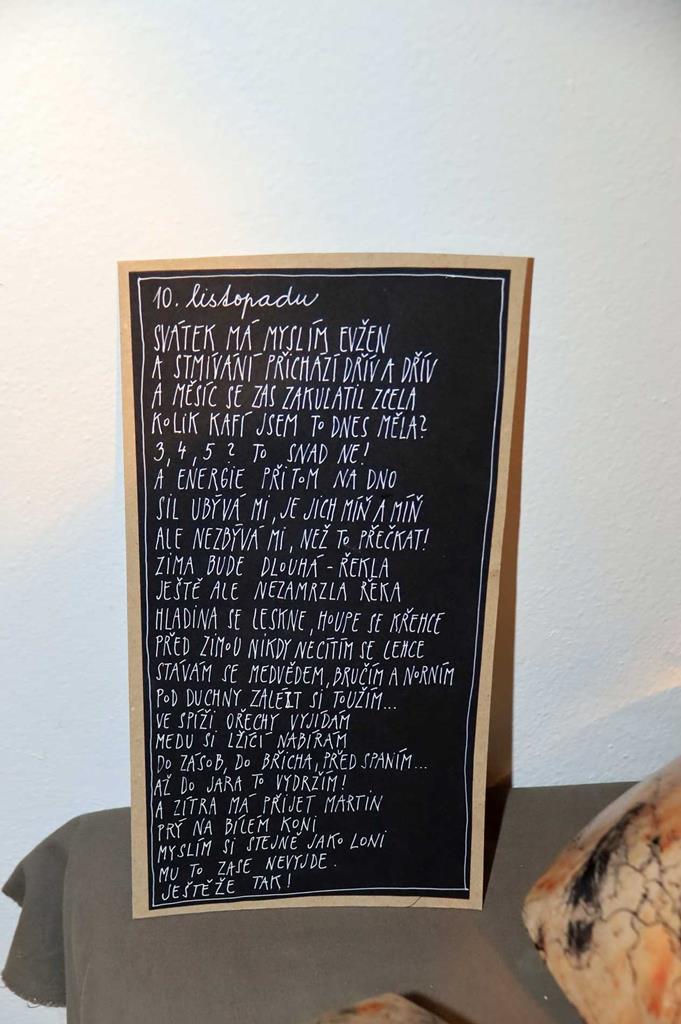 10. listopadu
SVÁTEK MÁ MYSLÍM EVŽEN
A STMÍVÁNÍ PŘICHÁZÍ DŘÍV A DŘÍV
A MĚSÍC SE ZAS ZAKULATIL ZCELA
KOLIK KAFÍ JSEM TO DNES MĚLA?
3, 4, 5 ? TO SNAD NE!
A ENERGIE PŘITOM NA DNO
SIL UBÝVÁ MI, JE JICH MÍŇ A MÍŇ
ALE NEZBÝVÁ MI, NEŽ TO PŘEČKAT!
ZIMA BUDE DLOUHÁ - ŘEKLA
JEŠTĚ ALE NEZAMRZLA ŘEKA
HLADINA SE LESKNE, HOUPE SE KŘEHCE
PŘED ZIMOU NIKDY NECÍTÍM SE LEHCE
STÁVÁM SE MEDVĚDEM, BRUČÍM A NORNÍM
POD DUCHNY ZALÉZT SI TOUŽÍM...
VE SPÍŽI OŘECHY VYJÍDÁM
MEDU SI LŽÍCÍ NABÍRÁM
DO ZÁSOB, DO BŘICHA, PŘED SPANÍM...
AŽ DO JARA TO VYDRŽÍM!
A ZÍTRA MÁ PŘIJET MARTIN
PRÝ NA BÍLÉM KONI
MYSLÍM SI STEJNĚ JAKO LONI
MU TO ZASE NEVYJDE.
JEŠTĚŽE TAK!